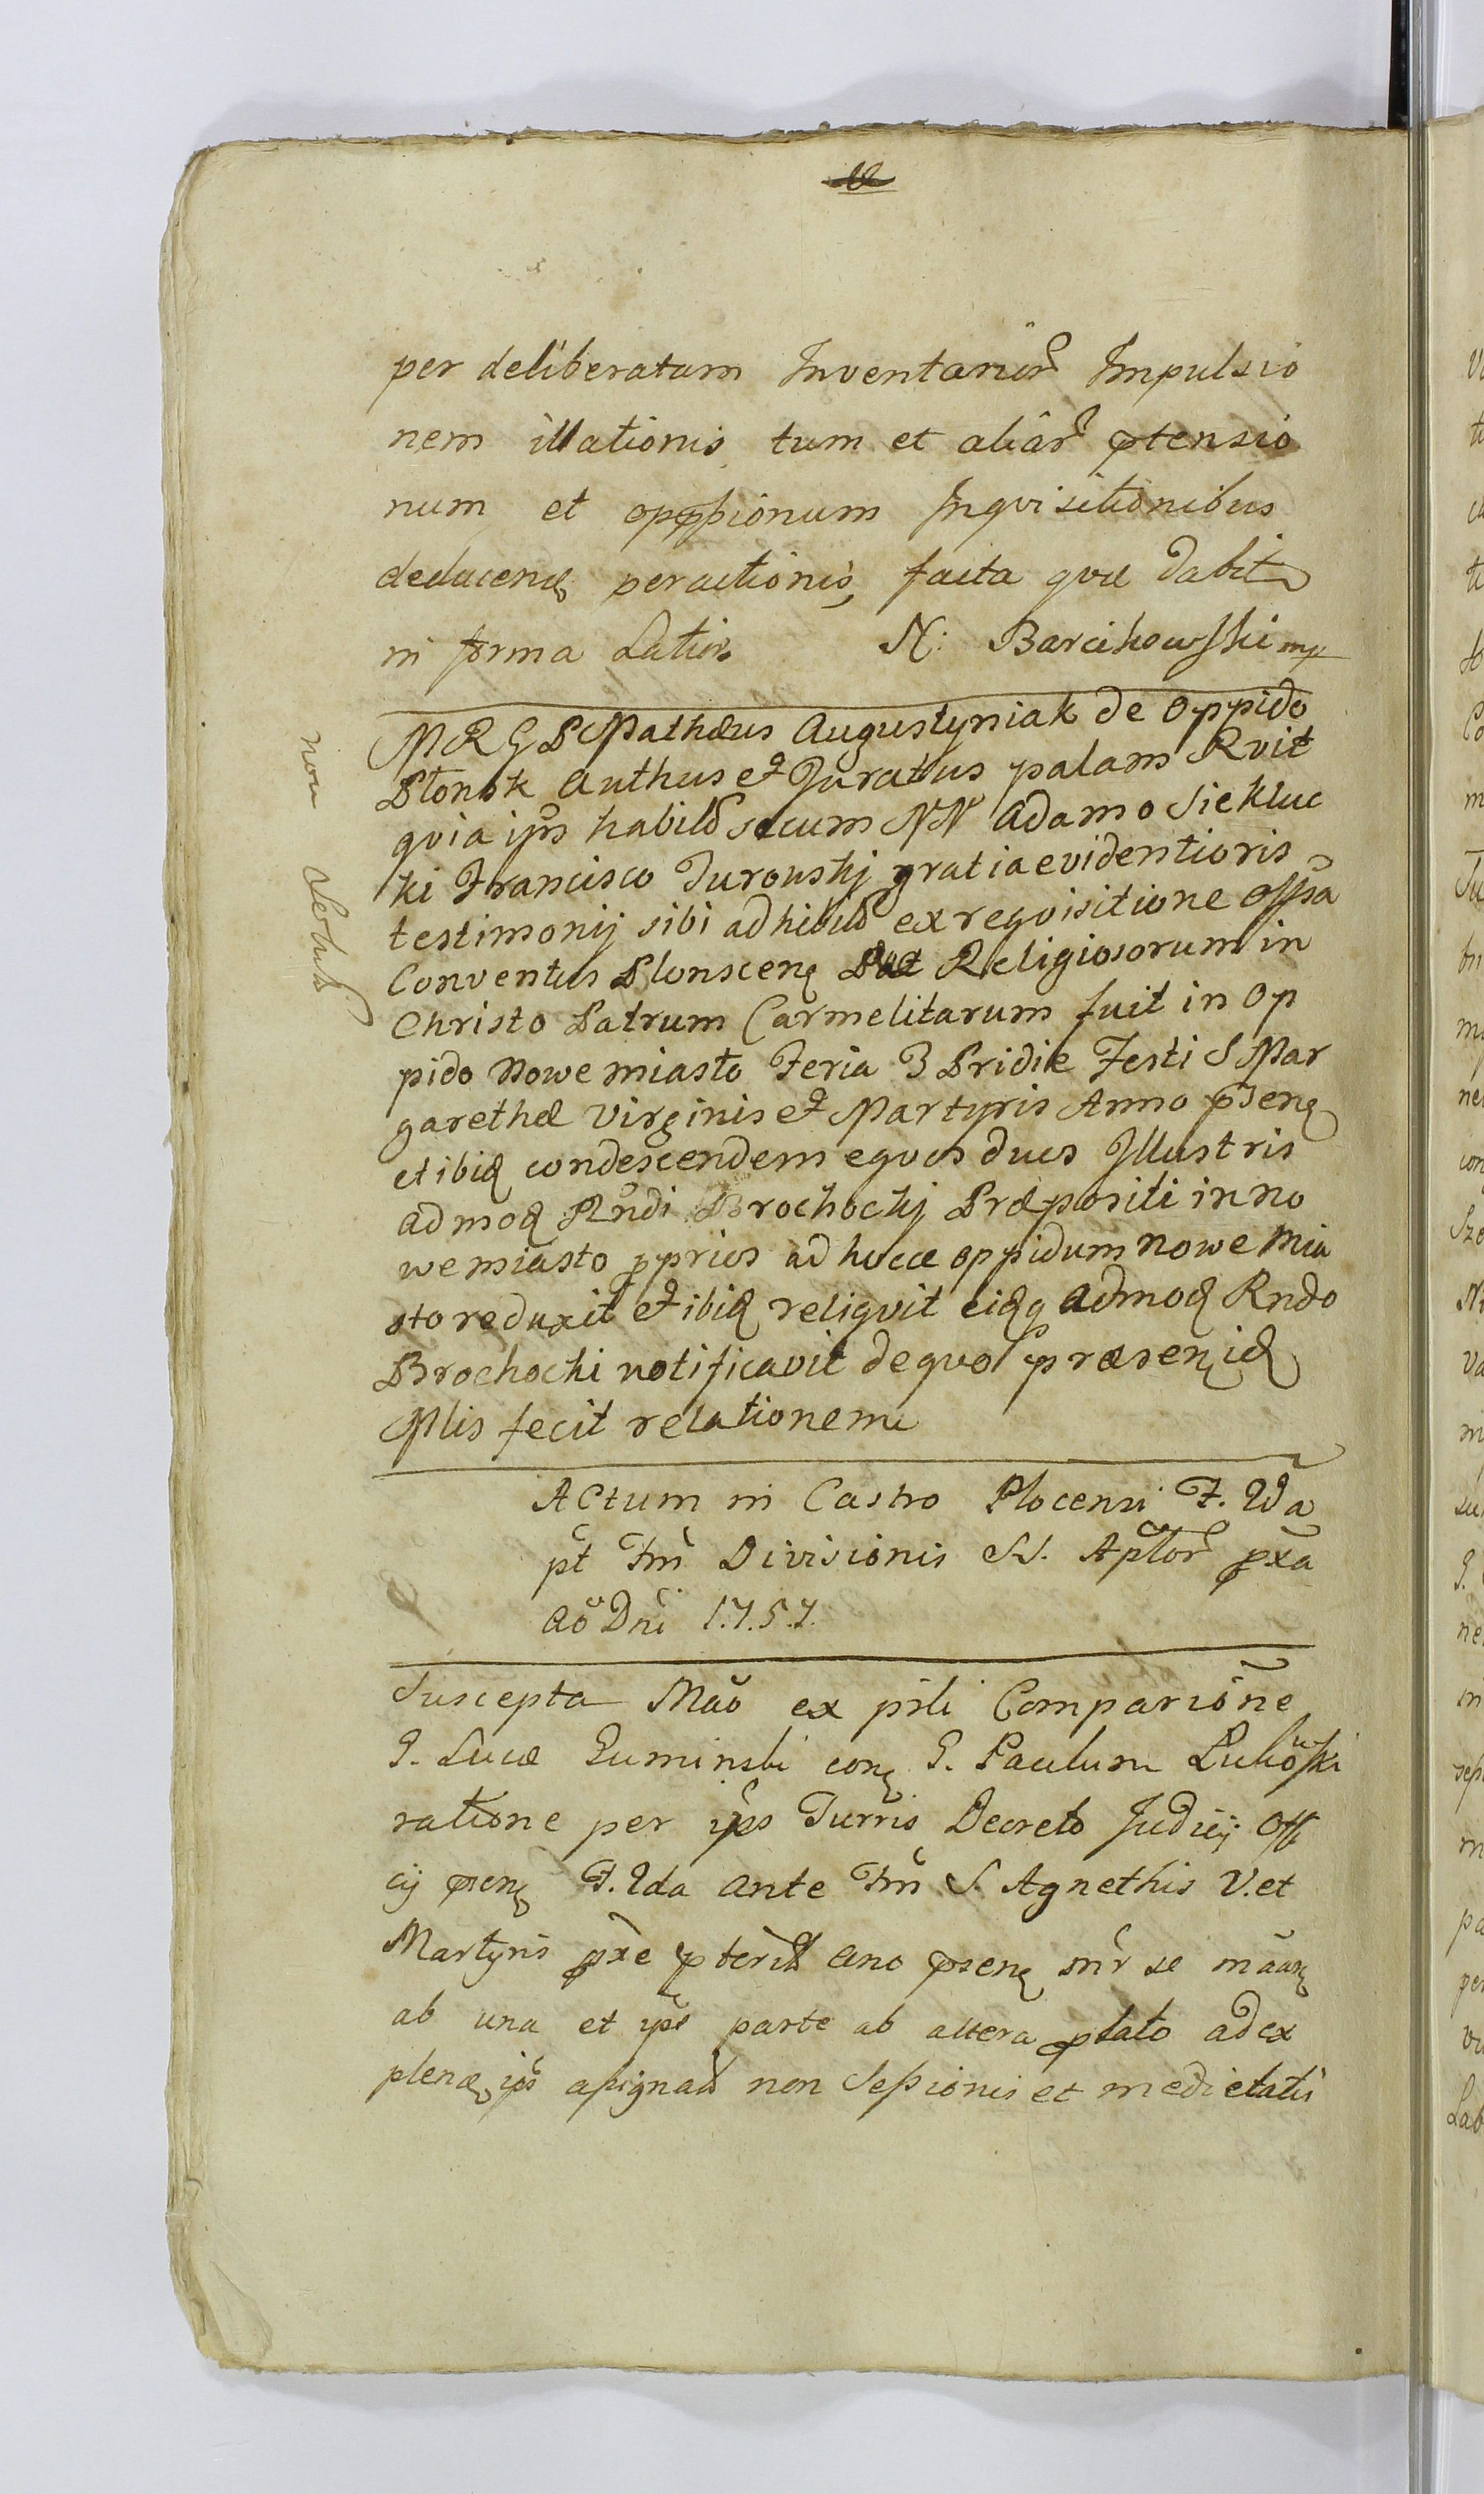 per deliberatam Inventarior Impulsio
nem illationis tum et aliar ptensio
num et oppssionum Inqvisitionibus
deducen peractionis facta qvæ dabit
in forma Latiori N: Barcikowski mp
MRGP Mathæus Augustyniak de Oppido
Płonsk Authus et Juratus palam Rvit
qvia ips habitis secum NN Adamo Siekluc
ki Francisco Turowskj gratia evidentioris
testimonij sibi adhibitis ex reqvisitione Offsa
Conventus Plonscen Religiosorum in
Christo Patrum Carmelitarum fuit in Op
pido Nowe miasto Feria 3 Pridie Festi S Mar
garethæ Virginis et Martyris Anno psen
et ibid condescendem eqvos duos Illustris
admod Rndi Brochockj Præpositi in No
we miasto pprios ad hocce oppidum Nowe Mia
sto reduxit et ibid reliqvit eidq Admod Rndo
Brochocki notificavit de qvo præsen id
Mlis fecit relationem
non solut
Actum in Castro Plocensi F. 2da
pt Fm Divisionis SS. Aplor pxa
Ao Dni 1.7.5.7.
Suscepta Mao ex prli Comparione
G. Lucæ Guminski con G. Paulum Lukowski
ratione per ips Turris Decreto Judicij Offi
cij psen F. 2da ante Fm S. Agnethis V. et
Martyris pxe pterit Ano psen inr se
ab una et ips parte ab altera plato ad ex
plen ips assignat non Sessionis et medietatis